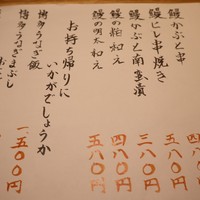 鰻かぶと串
鰻ヒレ串焼き
鰻かぶと南蛮漬
鰻の鮑和え
鰻の明太和え
お持ち帰りに
いかがでしょうか
博多うなぎ飯
博多うなぎまぶし
五八〇円
五八〇円
三八〇円
四八〇円
五八〇円
一五〇〇円